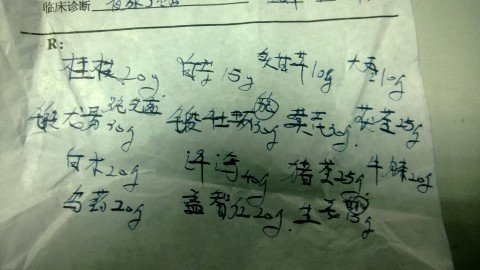 临床诊断
R:
桂枝20g 白芍15g 炙甘草10g 大枣10g
煅龙骨30g 煅牡蛎30g 黄芪30g 茯苓25g
白术20g 泽泻40g 猪苓25g 牛膝20g
乌药20g 益智仁20g 生姜15g